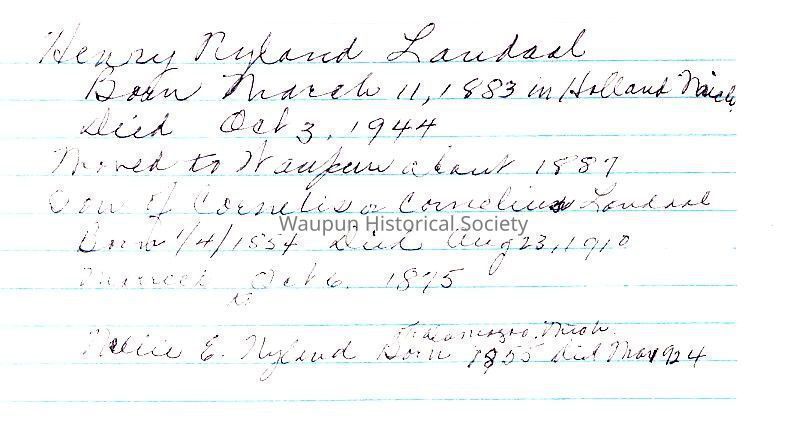 Henry Nyland Landaal
Born March 11, 1883 in Holland Mich.
Died Oct 3, 1944
Moved to Waupun about 1887
Son of Cornelis or Cornelius Landaal
Waupun Historical Society
Born 1/4/1854 Died Aug 23, 1910
Married Oct 6, 1875
Kalamazoo, Mich.
Nellie E. Nyland Born 1855 Died May 1924